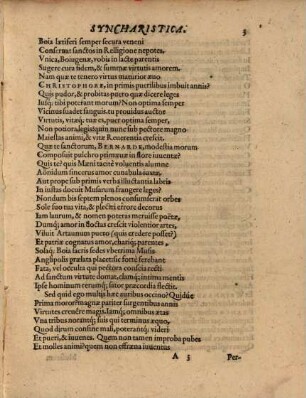 SYNCHARISTICA. 3
Boia latiferi semper secura veneni
Confertus sanctos in Relligione nepotes,
Vnica, Boiugenæ, vobis in lacte parentis
Sugere cura fidem, & summæ virtutis amorem.
Nam quæ te tenero virtus maturior æuo
CHRISTOPHORE, in primis puerilibus imbuit annis?
Quis pudor, & probitas puero quæ dicere leges
Iusq; tibi poterant morum? Non optima semper
Vicinus suadet sanguis: tu prouidus auctor
Virtutis, vitæq; tuæ es, puer optima semper,
Non potior alegisti quin nunc sub pectore magno
Maiestas animi, & vitæ Reuerentia crescit.
Quæ te sanctorum, BERNARDE, modestia morum
Composuit pulchro primæuæ in flore iuuentæ?
Quis te? quis Mani tacitè voluentis alumne
Aonidum sincerus amor cunabula
Aut prope sub primis verba illuctantia labris
In iustas docuit Musarum frangere leges?
Nondum bis septem plenos consumserat orbes
Sole suo tua vita, & plectri errore decoros
Iam laurum, & nomen poteras meruisse poëtæ,
Dumq; amor in doctas crescit violentior artes,
Viluit Artaunum puero (quis credere posset?)
Et patriæ cognatus amor, chariq; parentes,
Solaq; Boia sacris sedes vberrima Musis
Anglipolis præsens placet: sic fortè ferebant
Fata, vel occultis qui pectora conscia rectri
Ad sanctum virtute domat, clauisq; inimi mentis
Ipse hominum rerumq; satur præcordia flectit.
Sed quid ego multis hæc auribus occino? Quid
Prima moror? magnæ pariter surgentibus annis
Virtutes creuêre magis, iamq; omnibus ætas
Vna tribus norantq; suis qui terminus æquo,
Quod dirum continet mali, poterantq; videri
Et pueri, & iuuenes. Quem non tamen improba pubes
Et molles animi? quem non effræna iuuentus
A 3 Per-